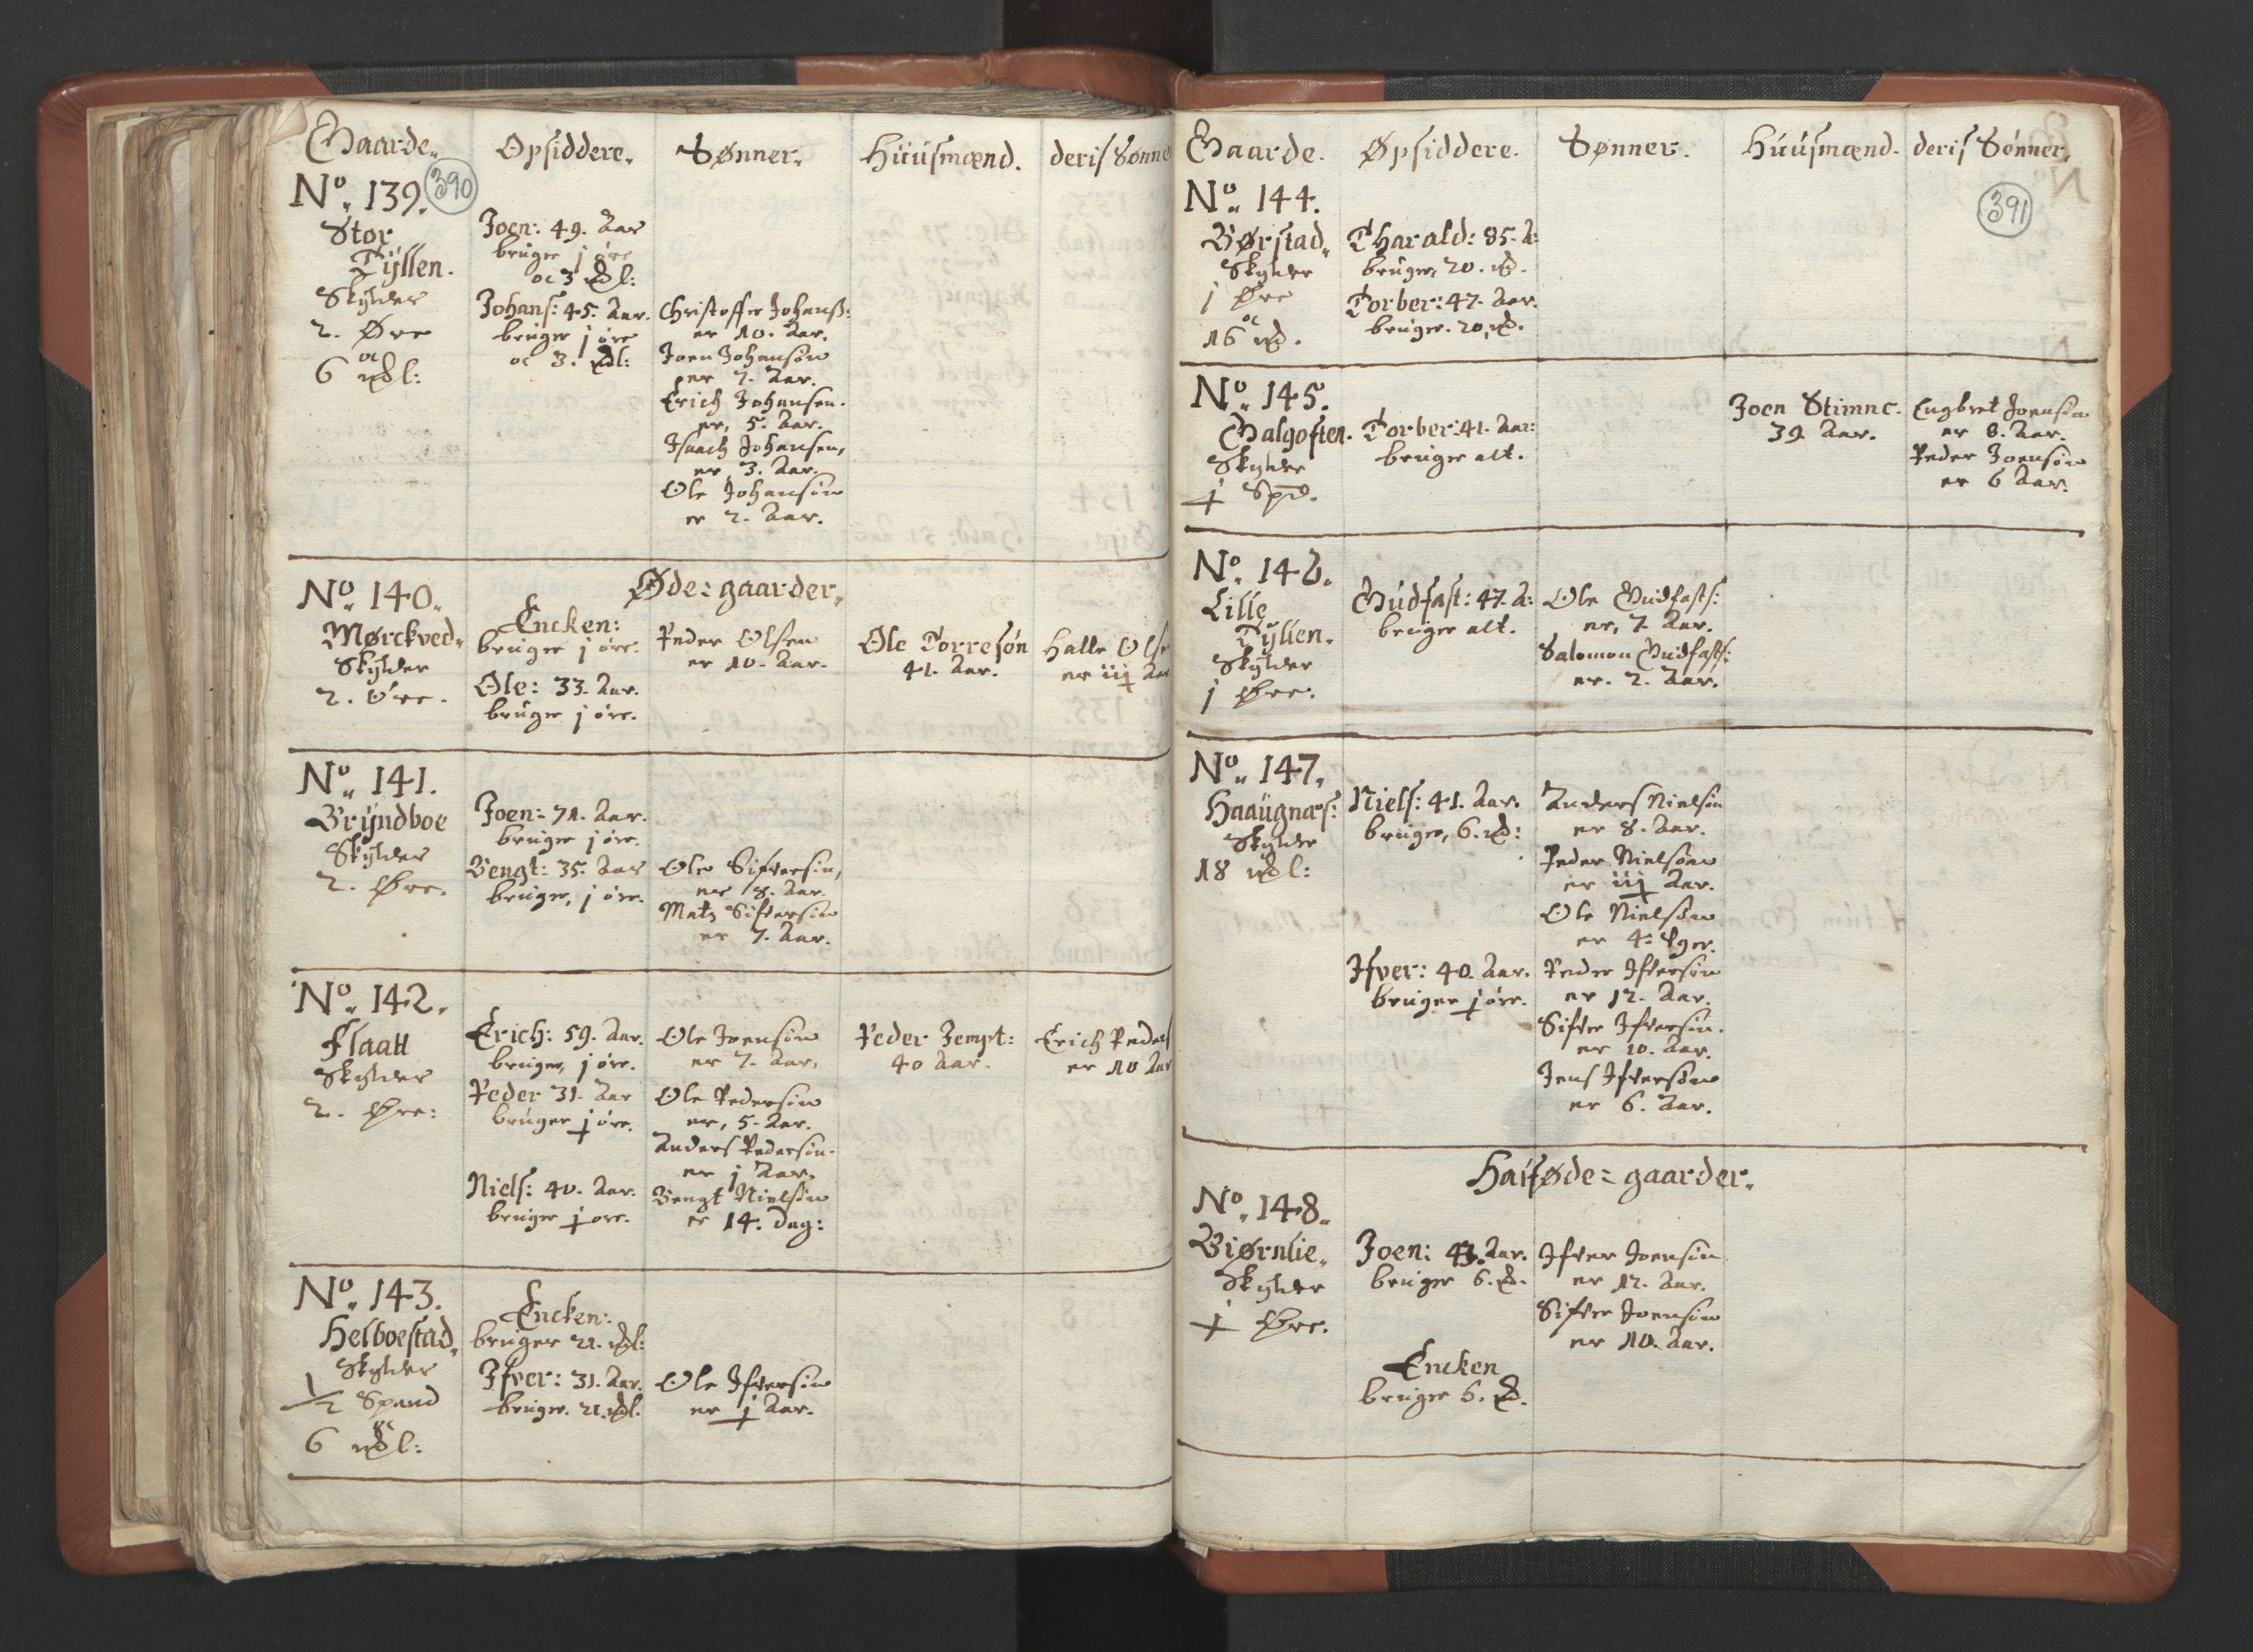 Gaarde. Opsiddere. Sønner. Huusmænd. deris Sønne
No. 139. 390
Stor
Tyllen.
Skylder
2. Øre
oc
6 mkl:
Joen: 49. Aar
bruger j øre
oc 3 mkl:
Johans: 45. Aar.
bruger j øre
oc 3. mkl:
Christoffer Johanss:
er 10. Aar.
Joen Johansøn
er 7. Aar.
Erich Johansen.
er, 5. Aar.
Isaach Johansen,
er 3. Aar.
Ole Johansøn
er 2. Aar.
Øde=gaarder.
No. 140.
Mørckved.
Skylder
2. Øre.
Encken:
bruger j øre.
Ole: 33. Aar.
bruger j øre.
Peder Olsen
er 10. Aar.
Ole Torresøn
41. Aar.
Halle Ols
er iij Aar
No. 141.
Bryndboe
Skylder
2. Øre.
Joen: 71. Aar.
bruger j øre.
Bengt: 35. Aar
bruger, j øre.
Ole Sifversøn,
er 8. Aar.
Mats Sifversøn
er 7. Aar.
No. 142.
Flaatt
Skylder
2. Øre:
Erich: 59. Aar.
bruger, j øre.
Peder 31. Aar
bruger j øre.
Niels: 40. Aar.
bruger j øre.
Ole Joensøn
er 7. Aar.
Ole Pedersøn
er, 5. Aar.
Anders Pedersøn.
er j Aar.
Bengt Nielsøn
er 14. dag:
Peder Jempt:
40 Aar.
Erich Peders
er 10 Aar
No. 143.
Helboestad.
Skylder
1/2 Spand
oc
6 mkl:
Encken:
bruger 21. mkl:
Ifver: 31. Aar.
bruger. 21. mkl.
Ole Ifversøn
er j Aar.
Gaarde. Opsiddere. Sønner. Huusmænd. deris Sønner.
391
No. 144.
Børstad.
Skylder
j Øre
oc
16 mk.
Tharald: 85. A:
bruger, 20. mk.
Torber: 47. Aar.
bruger. 20. mk.
No. 145.
Galgoften.
Skylder
j Spd.
Torber: 41. Aar:
bruger alt.
Joen Stimne.
39. Aar.
Engbret Joensøn
er 8. Aar.
Peder Joensøn
er 6 Aar.
No. 146.
Lille
Tyllen.
Skylder
j Øre.
Gudfast: 47. A:
bruger alt.
Ole Gudfasts:
er, 7. Aar.
Salomon Gudfasts:
er. 2. Aar.
No. 147.
Haaugnæs:
Skylder
18 mkl:
Niels: 41. Aar.
bruger, 6. mk:
Anders Nielsøn
er 8. Aar.
Peder Nielsøn
er iij Aar.
Ole Nielsøn
er 4: Uger.
Ifver: 40. Aar.
bruger j øre.
Peder Ifversøn
er 12. Aar.
Sifver Ifversøn.
er 10. Aar.
Jens Ifversøn
er 6. Aar.
Half øde=gaarder.
No. 148.
Biørnlie.
Skylder
j Øre.
Joen: 43. Aar.
bruger 6. mk.
Ifver Joensøn
er 12. Aar.
Sifver Joensøn
er 10. Aar.
Encken
bruger 6. mk.